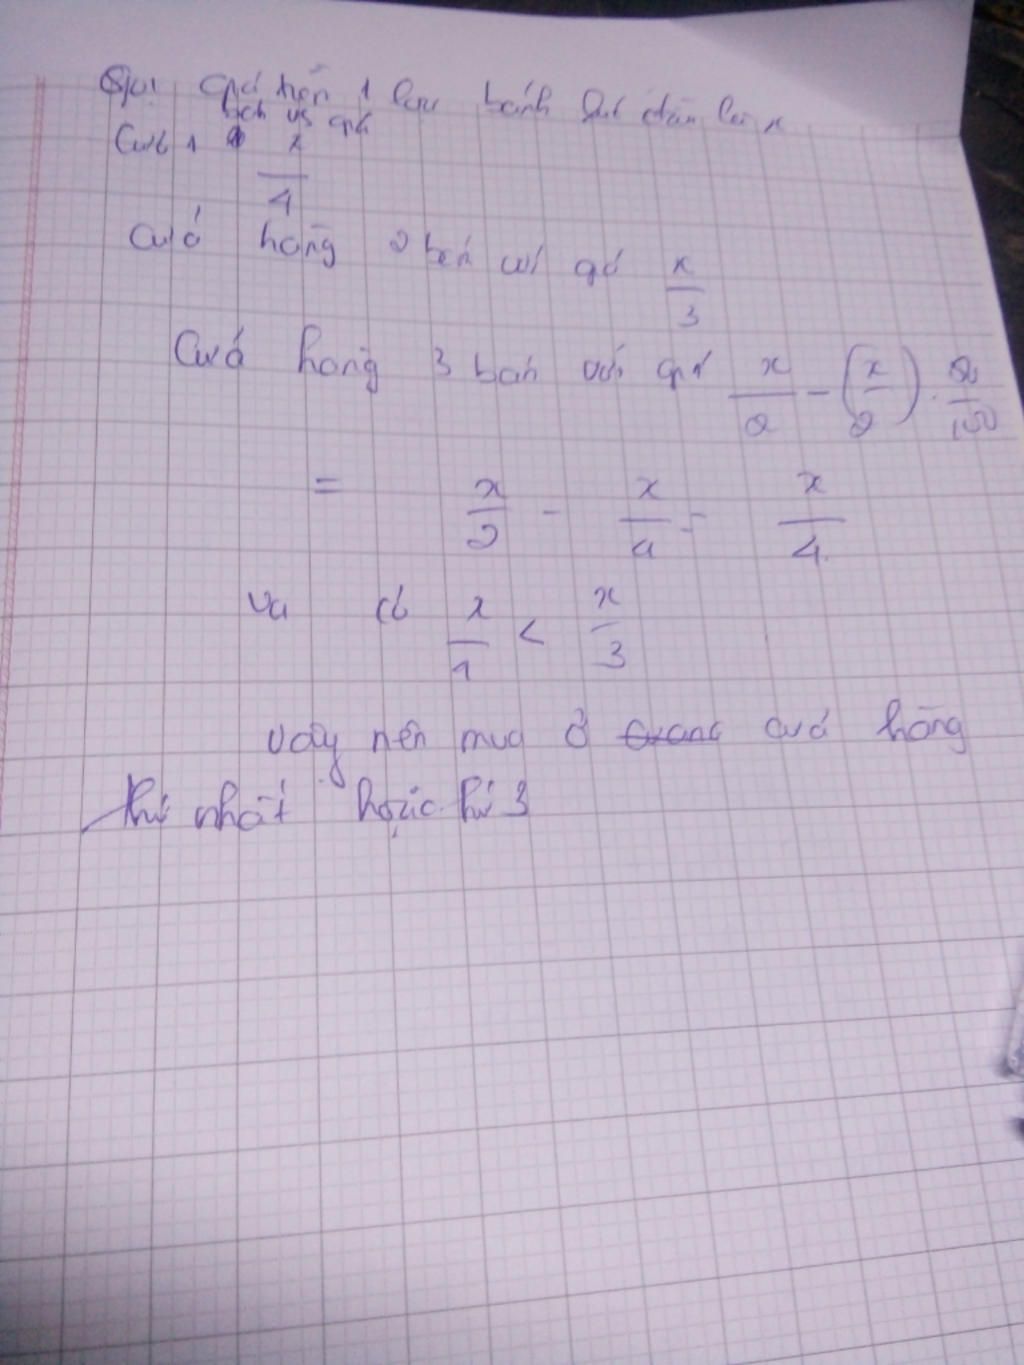 Gọi giá tiền 1 bánh lúc đầu là x
bán với giá
x
4
Cưả hàng 2 bán với giá x/3
Cưả hàng 3 bán với giá x/2 - (x/2) .
= x/2 - x/4 = x/4
Va có x/4 < x/3
vậy nên mua ở cưả hàng
thứ nhất hoặc thứ 3